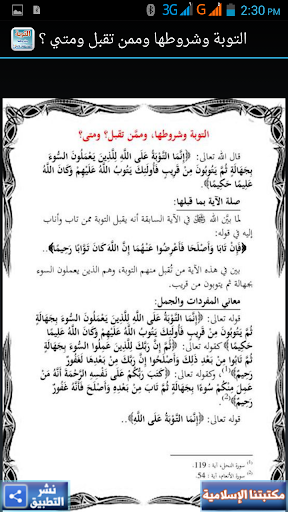 3G G 2:30 PM
التوبة وشروطها وممن تقبل ومتي ؟
التوبة وشروطها، وممَّن تقبل؟ ومتى؟
قال الله تعالى: ﴿إِنَّمَا التَّوْبَةُ عَلَى اللَّهِ لِلَّذِينَ يَعْمَلُونَ السُّوءَ
بِجَهَالَةٍ ثُمَّ يَتُوبُونَ مِنْ قَرِيبٍ فَأُولَئِكَ يَتُوبُ اللَّهُ عَلَيْهِمْ وَكَانَ اللَّهُ
عَلِيمًا حَكِيمًا﴾.
صلة الآية بما قبلها:
لما بيَّن الله ﷻ في الآية السابقة أنه يقبل التوبة ممن تاب وأناب
إليه في قوله:
﴿فَإِنْ تَابَا وَأَصْلَحَا فَأَعْرِضُوا عَنْهُمَا إِنَّ اللَّهَ كَانَ تَوَّابًا رَحِيمًا﴾،
بين في هذه الآية من تُقبل منهم التوبة، وهم الذين يعملون السوء
بجهالة ثم يتوبون من قريب.
معاني المفردات والجمل:
قوله تعالى: ﴿إِنَّمَا التَّوْبَةُ عَلَى اللَّهِ لِلَّذِينَ يَعْمَلُونَ السُّوءَ بِجَهَالَةٍ
ثُمَّ يَتُوبُونَ مِنْ قَرِيبٍ فَأُولَئِكَ يَتُوبُ اللَّهُ عَلَيْهِمْ وَكَانَ اللَّهُ عَلِيمًا
حَكِيمًا﴾، وكقوله تعالى: ﴿ثُمَّ إِنَّ رَبَّكَ لِلَّذِينَ عَمِلُوا السُّوءَ بِجَهَالَةٍ
ثُمَّ تَابُوا مِنْ بَعْدِ ذَلِكَ وَأَصْلَحُوا إِنَّ رَبَّكَ مِنْ بَعْدِهَا لَغَفُورٌ
رَحِيمٌ﴾، وكقوله تعالى: ﴿كَتَبَ رَبُّكُمْ عَلَى نَفْسِهِ الرَّحْمَةَ أَنَّهُ مَنْ
عَمِلَ مِنْكُمْ سُوءًا بِجَهَالَةٍ ثُمَّ تَابَ مِنْ بَعْدِهِ وَأَصْلَحَ فَأَنَّهُ غَفُورٌ
رَحِيمٌ﴾.
قوله تعالى: ﴿إِنَّمَا التَّوْبَةُ عَلَى اللَّهِ﴾..
(1) سورة النحل، آية : 119.
(2) سورة الأنعام، آية : 54.
نشر التطبيق
مكتبتنا الإسلامية